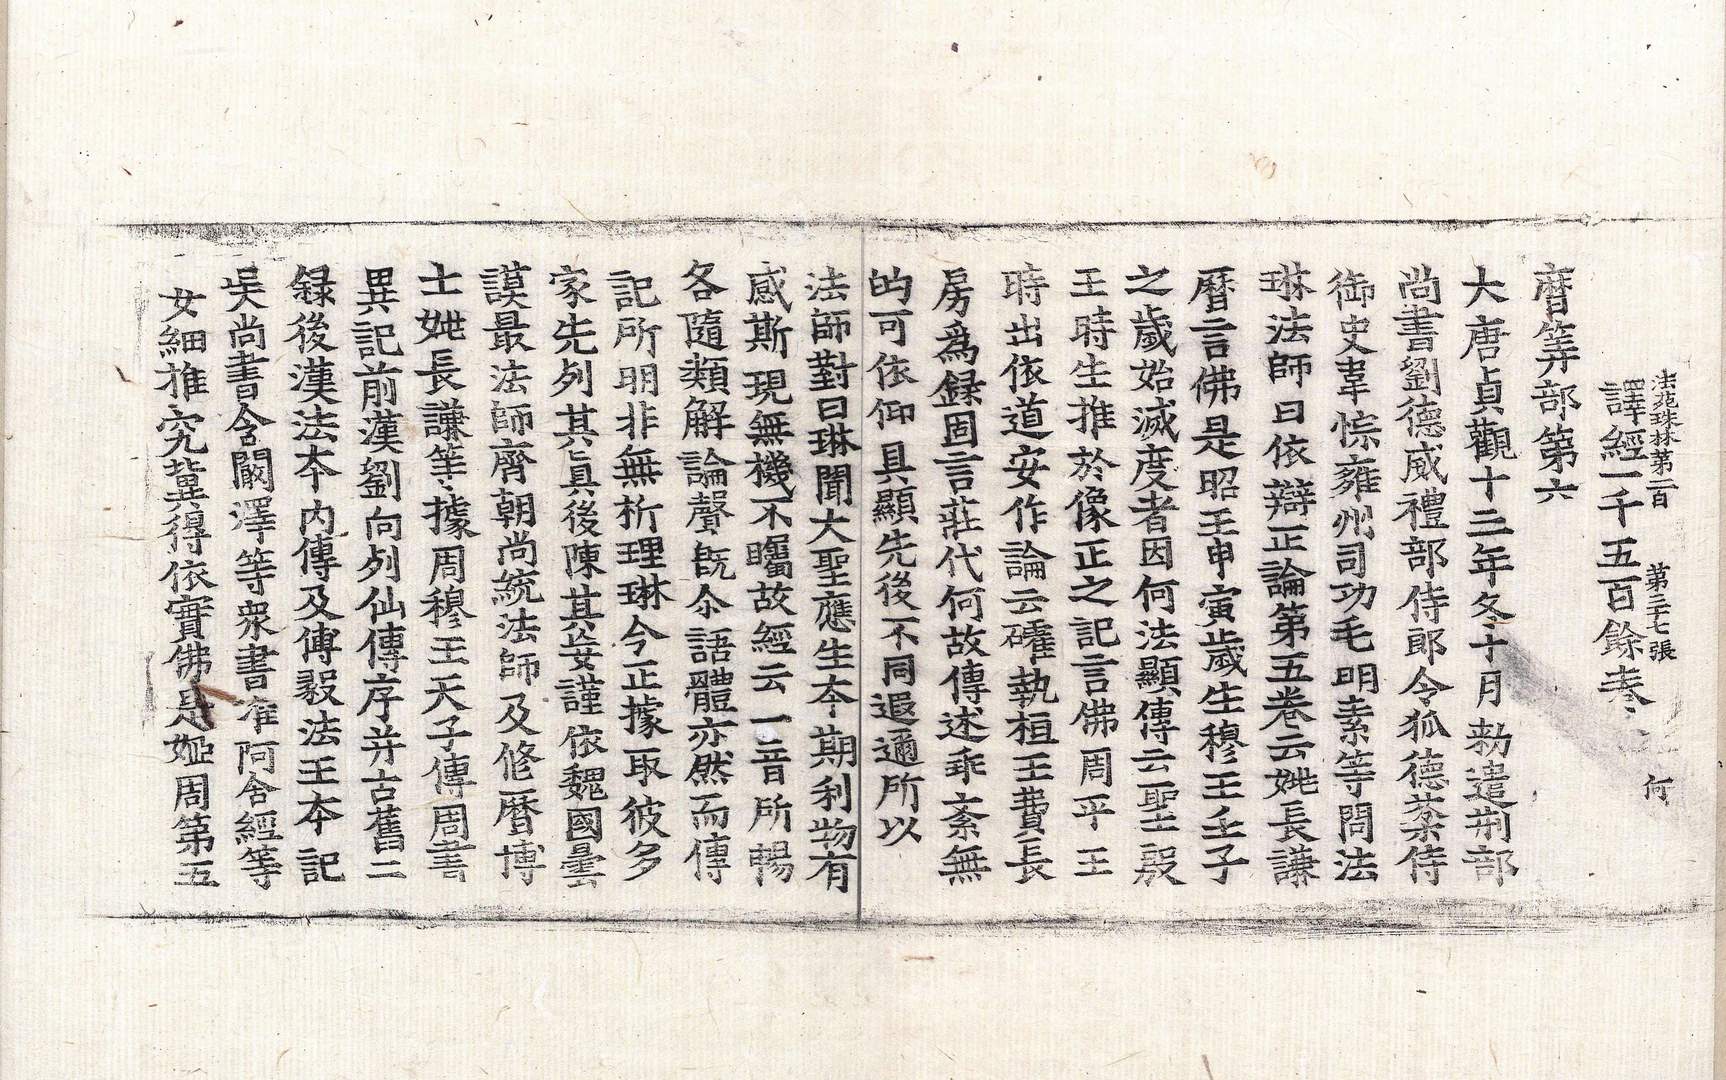 法苑珠林第一百　第三十七張　何
譯經一千五百餘卷
曆筭部第六
大唐貞觀十三年冬十月勑遣刑部
尚書劉德威禮部侍郎令狐德棻侍
御史韋悰雍州司功毛明素等問法
琳法師曰依辯正論第五卷云姚長謙
曆言佛是昭王甲寅歲生穆王壬子
之歲始滅度者因何法顯傳云聖殷
王時生推於像正之記言佛周平王
時出依道安作論云確執桓王費長
房爲録固言莊代何故傳述乖紊無
的可依仰具顯先後不同遐邇所以
法師對曰琳聞大聖應生本期利物有
感斯現無機不矚故經云一音所暢
各隨類解論聲旣尒語體亦然而傳
記所明非無析理琳今正據取彼多
家先列其眞後陳其妄謹依魏國曇
謨最法師齊朝尚統法師及修曆博
士姚長謙等據周穆王天子傳周書
異記前漢劉向列仙傳序并古舊二
録後漢法本內傳及傅毅法王本記
吳尚書令闞澤等衆書准阿含經等
文細推究冀得依實佛是姬周第五